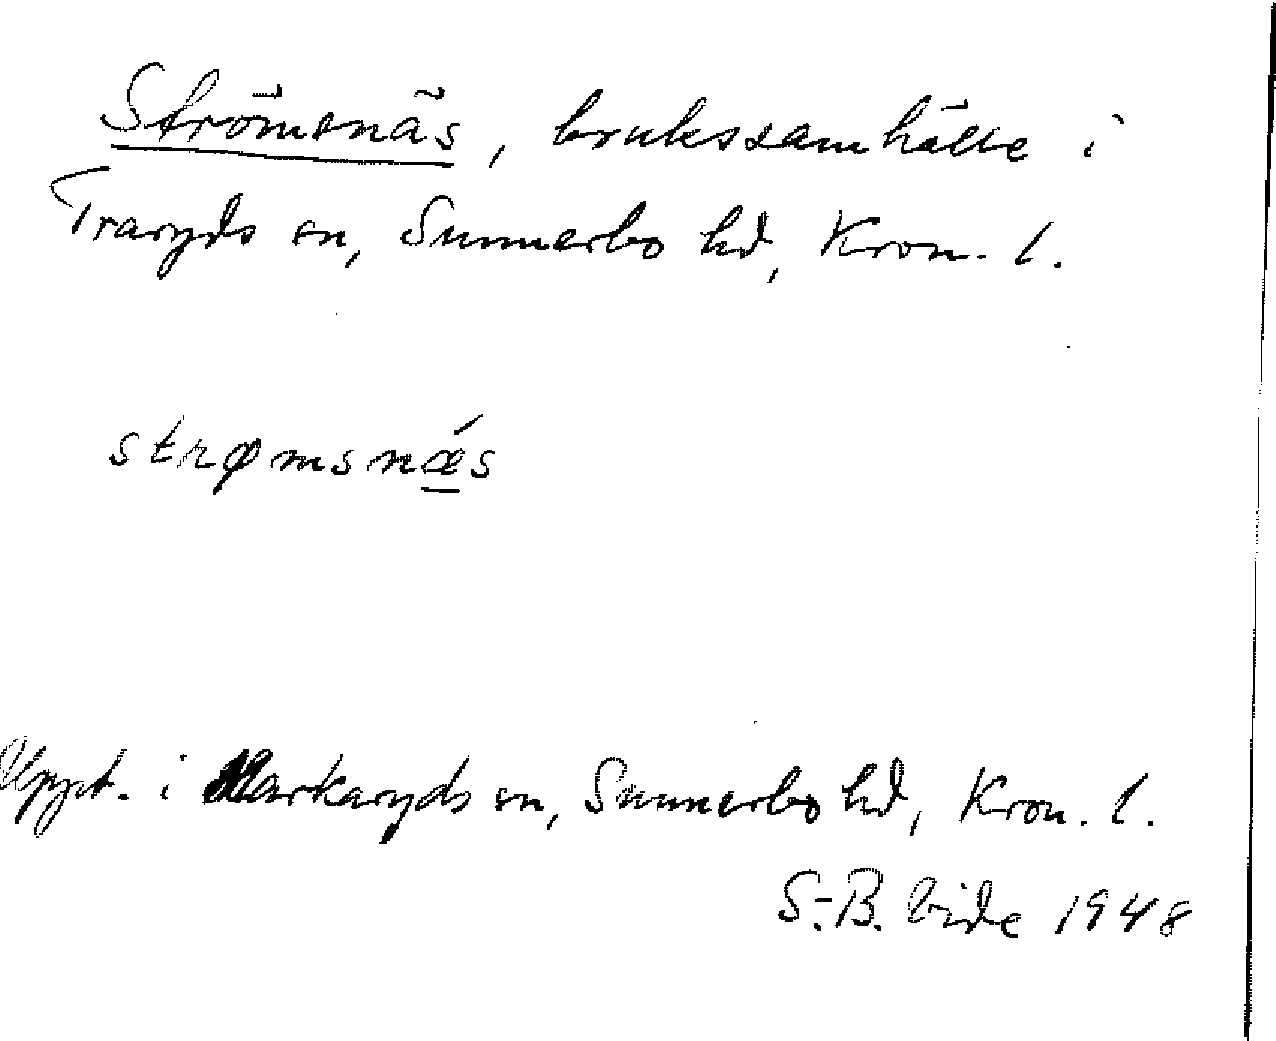 Strömsnäs, brukssamhälle i
Traryds sn, Sunnerbo hd, Kron. l.
strømsnǽs
Uppt. i Markaryds sn, Sunnerbo hd, Kron. l.
S.-B. Vide 1948